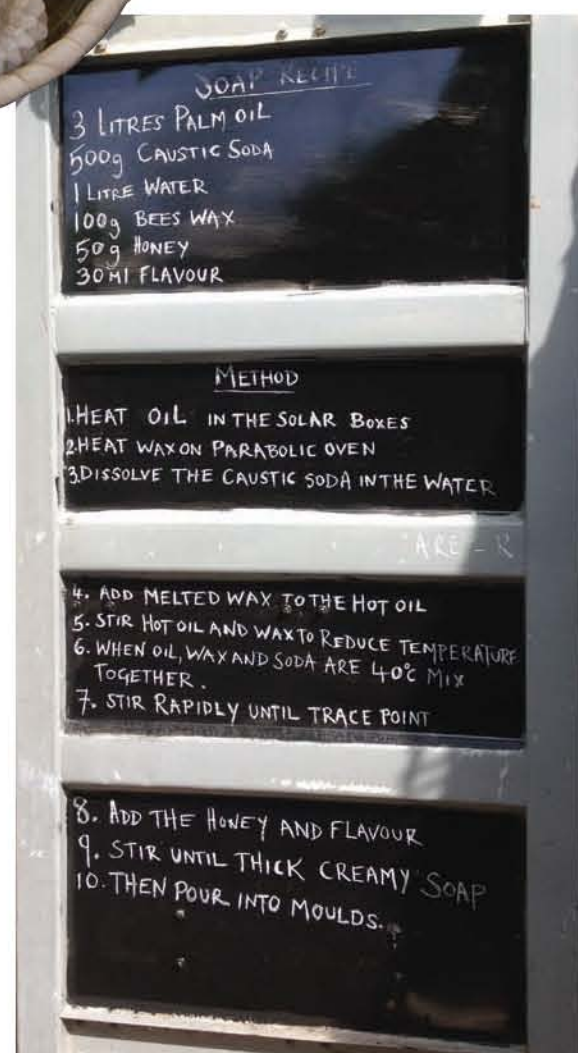 SOAP RECIPE
3 LITRES PALM OIL
500g CAUSTIC SODA
1 LITRE WATER
100g BEES WAX
50g HONEY
30Ml FLAVOUR
METHOD
1.HEAT OIL IN THE SOLAR BOXES
2.HEAT WAX ON PARABOLIC OVEN
3.DISSOLVE THE CAUSTIC SODA IN THE WATER
ARE - R
4. ADD MELTED WAX TO THE HOT OIL
5. STIR HOT OIL AND WAX TO REDUCE TEMPERATURE
6. WHEN OIL, WAX AND SODA ARE 40°C MIX
TOGETHER.
7. STIR RAPIDLY UNTIL TRACE POINT
8. ADD THE HONEY AND FLAVOUR
9. STIR UNTIL THICK CREAMY SOAP
10. THEN POUR INTO MOULDS.